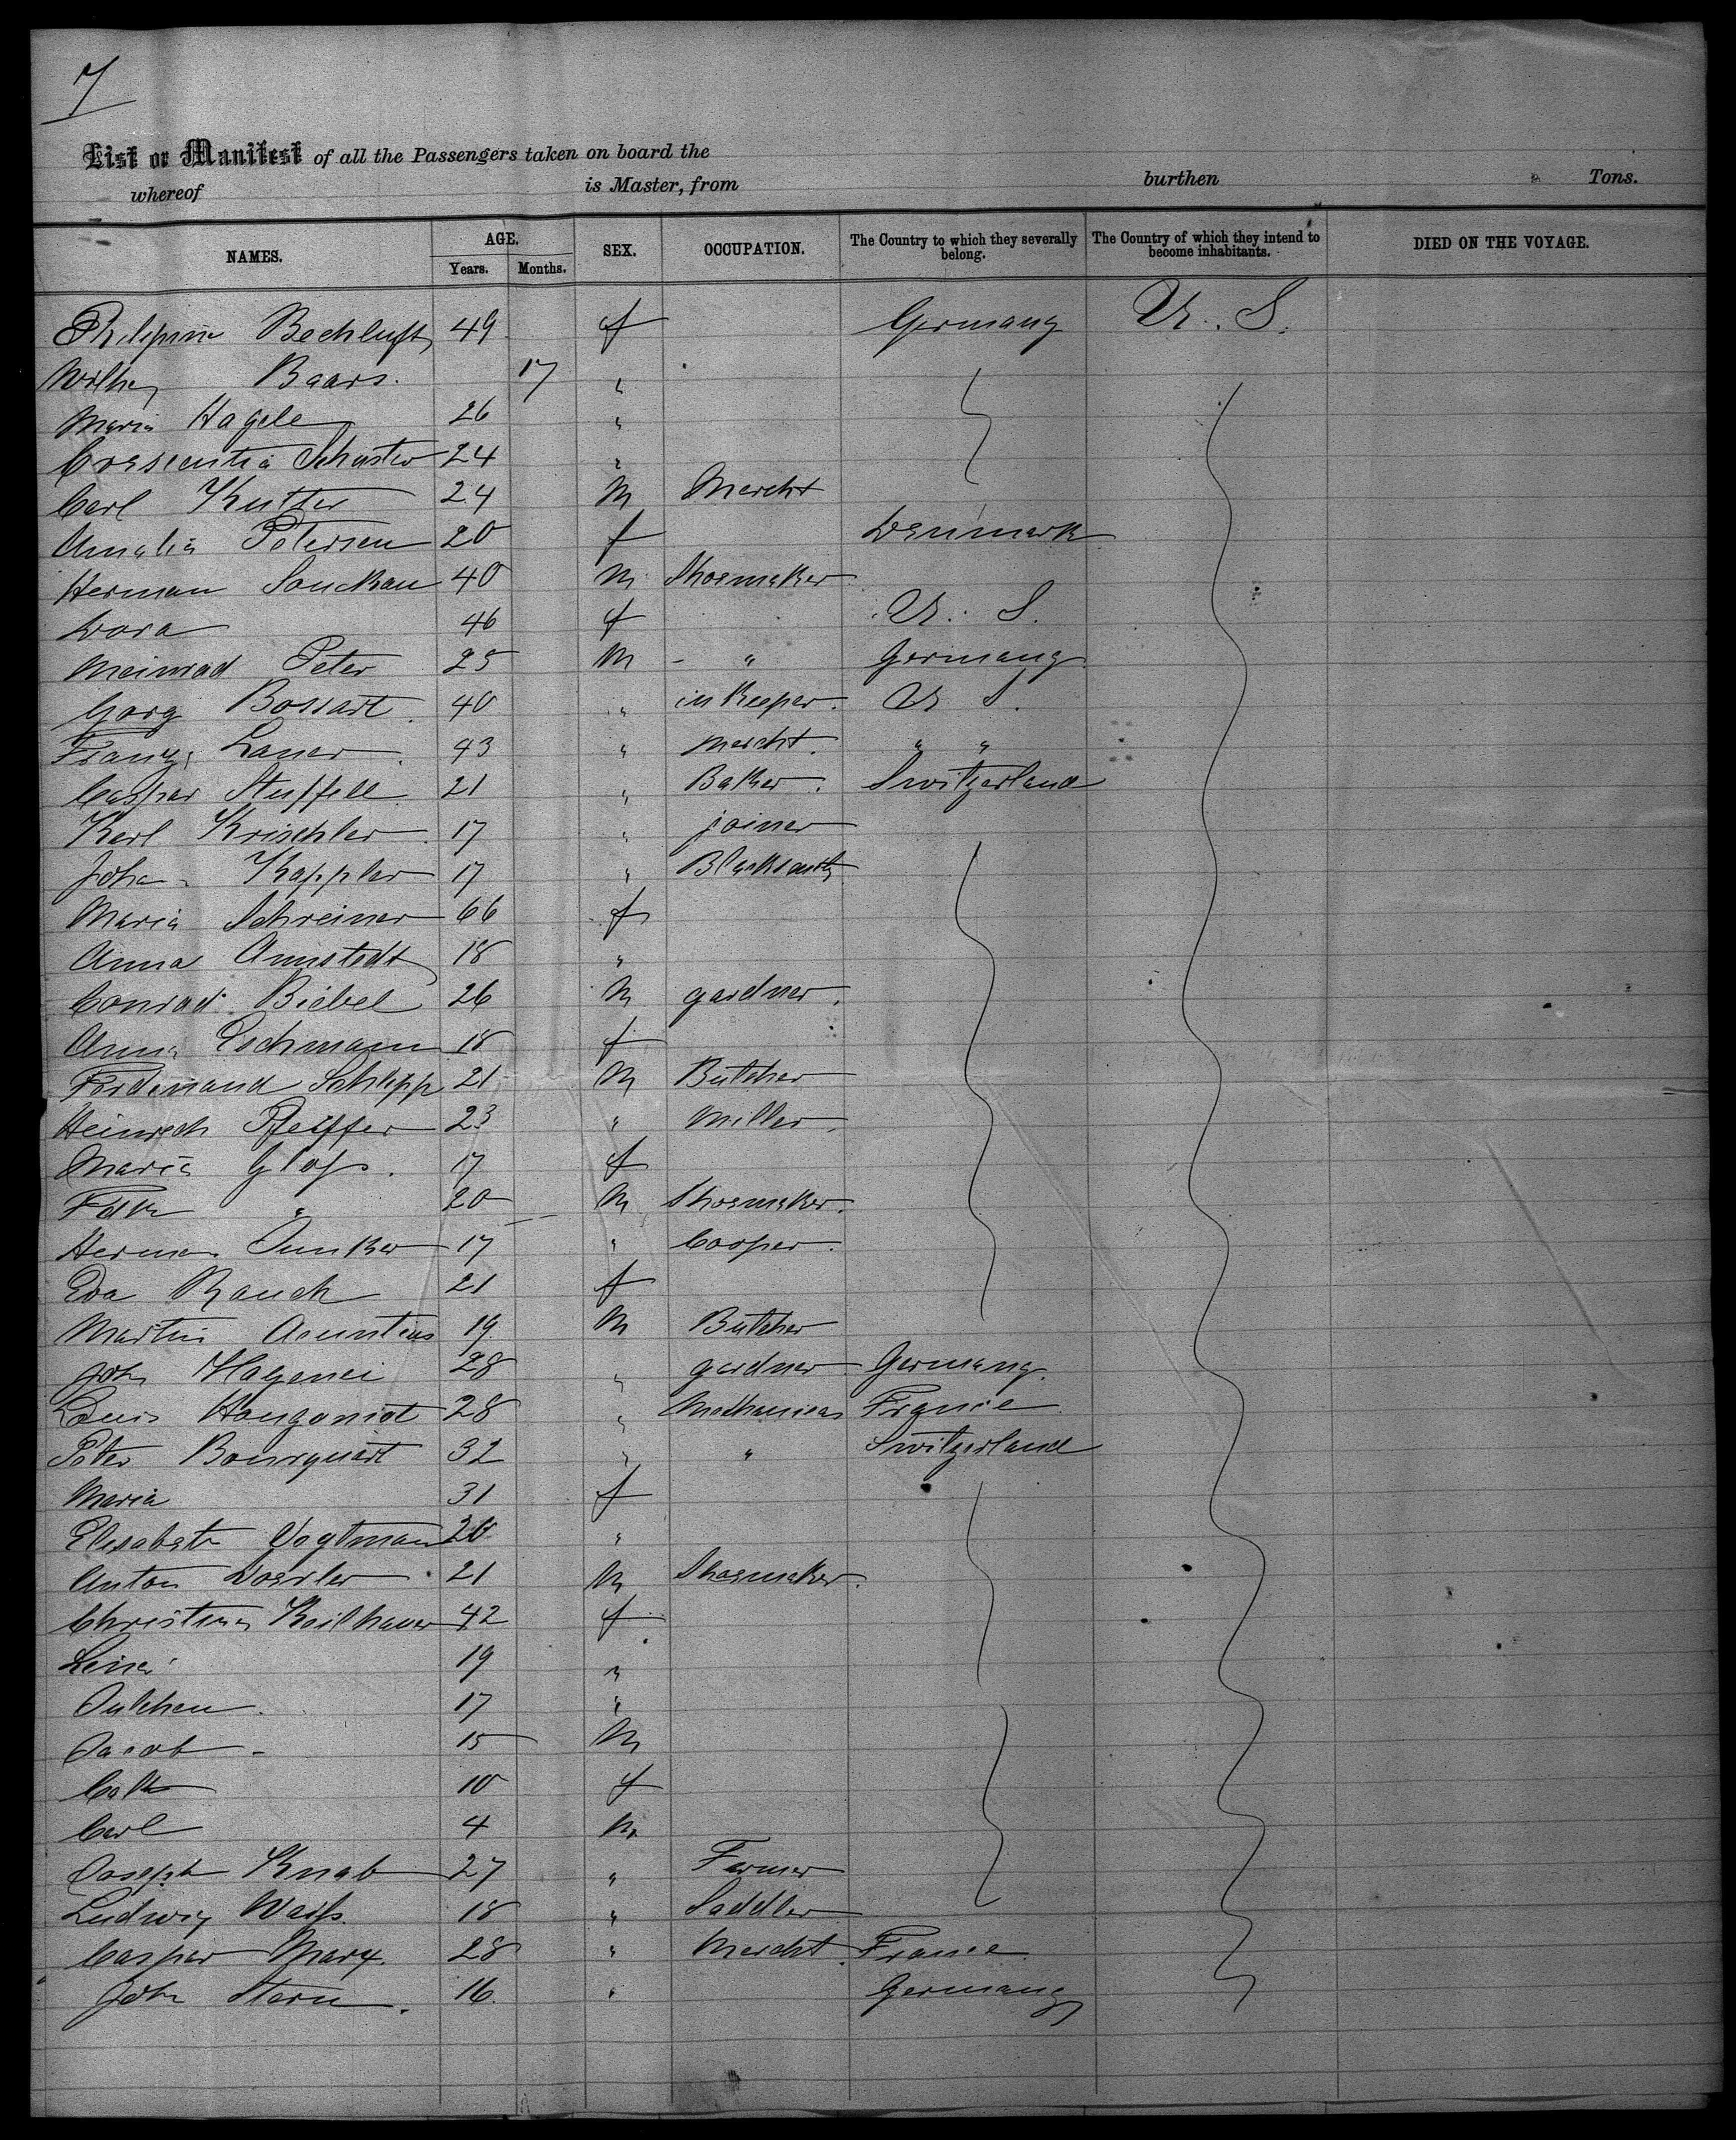 7
List or Manifest of all the Passengers taken on board the
whereof is Master, from burthen Tons.
NAMES. AGE. SEX. OCCUPATION. The Country to which they severally belong. The Country of which they intend to become inhabitants. DIED ON THE VOYAGE.
Years. Months.
Philippine Bechluft 49 f Germany U. S.
Wilhe Baars. 17 "
Maria Hagele 26 "
Crescentia Schuster 24 "
Carl Kutter 24 M Mercht
Amalia Petersen 20 f Denmark
Herman Souckau 40 M Shoemaker
Dora 46 f U. S.
Meinrad Peter 25 M - " Germany
Gorg Bossart. 40 " inkeeper. U S.
Franz Laner 43 " Mercht. " "
Caspar Stuffele 21 " Baker. Switzerland
Karl Krischler 17 " joiner
Joha Kappler 17 " Blacksmith
Maria Schreiner 66 f
Anna Armstedt 18 "
Conrad Biebel 26 M gardner.
Anna Eschmann 18 f
Ferdinand Schlepp 21 M Butcher
Heinrich Pfeiffer 23 " Miller.
Maria Glass. 17 f
Fdk " 20 M Shoemaker.
Herman Junker 17 " Cooper.
Eva Rauch 21 f
Martin 19 M Butcher
Joh Hagenei 28 " gardner Germany.
Louis Hougoniot 28 " France
Peter Bourquart 32 " " Switzerland
Maria 31 f
Elisabeth Vogtman 20 "
Anton Doerler 21 M Shoemaker.
Christina Keilhauer 42 f
Lina 19 "
Julchen. 17 "
Jacob - 15 M
Cath 10 f
Carl 4 M
Joseph Knab 27 " Farmer
Ludwig Waiss. 18 " Saddler
Caspar Marx. 28 " Mercht. France
Joh Stern. 16. " Germany